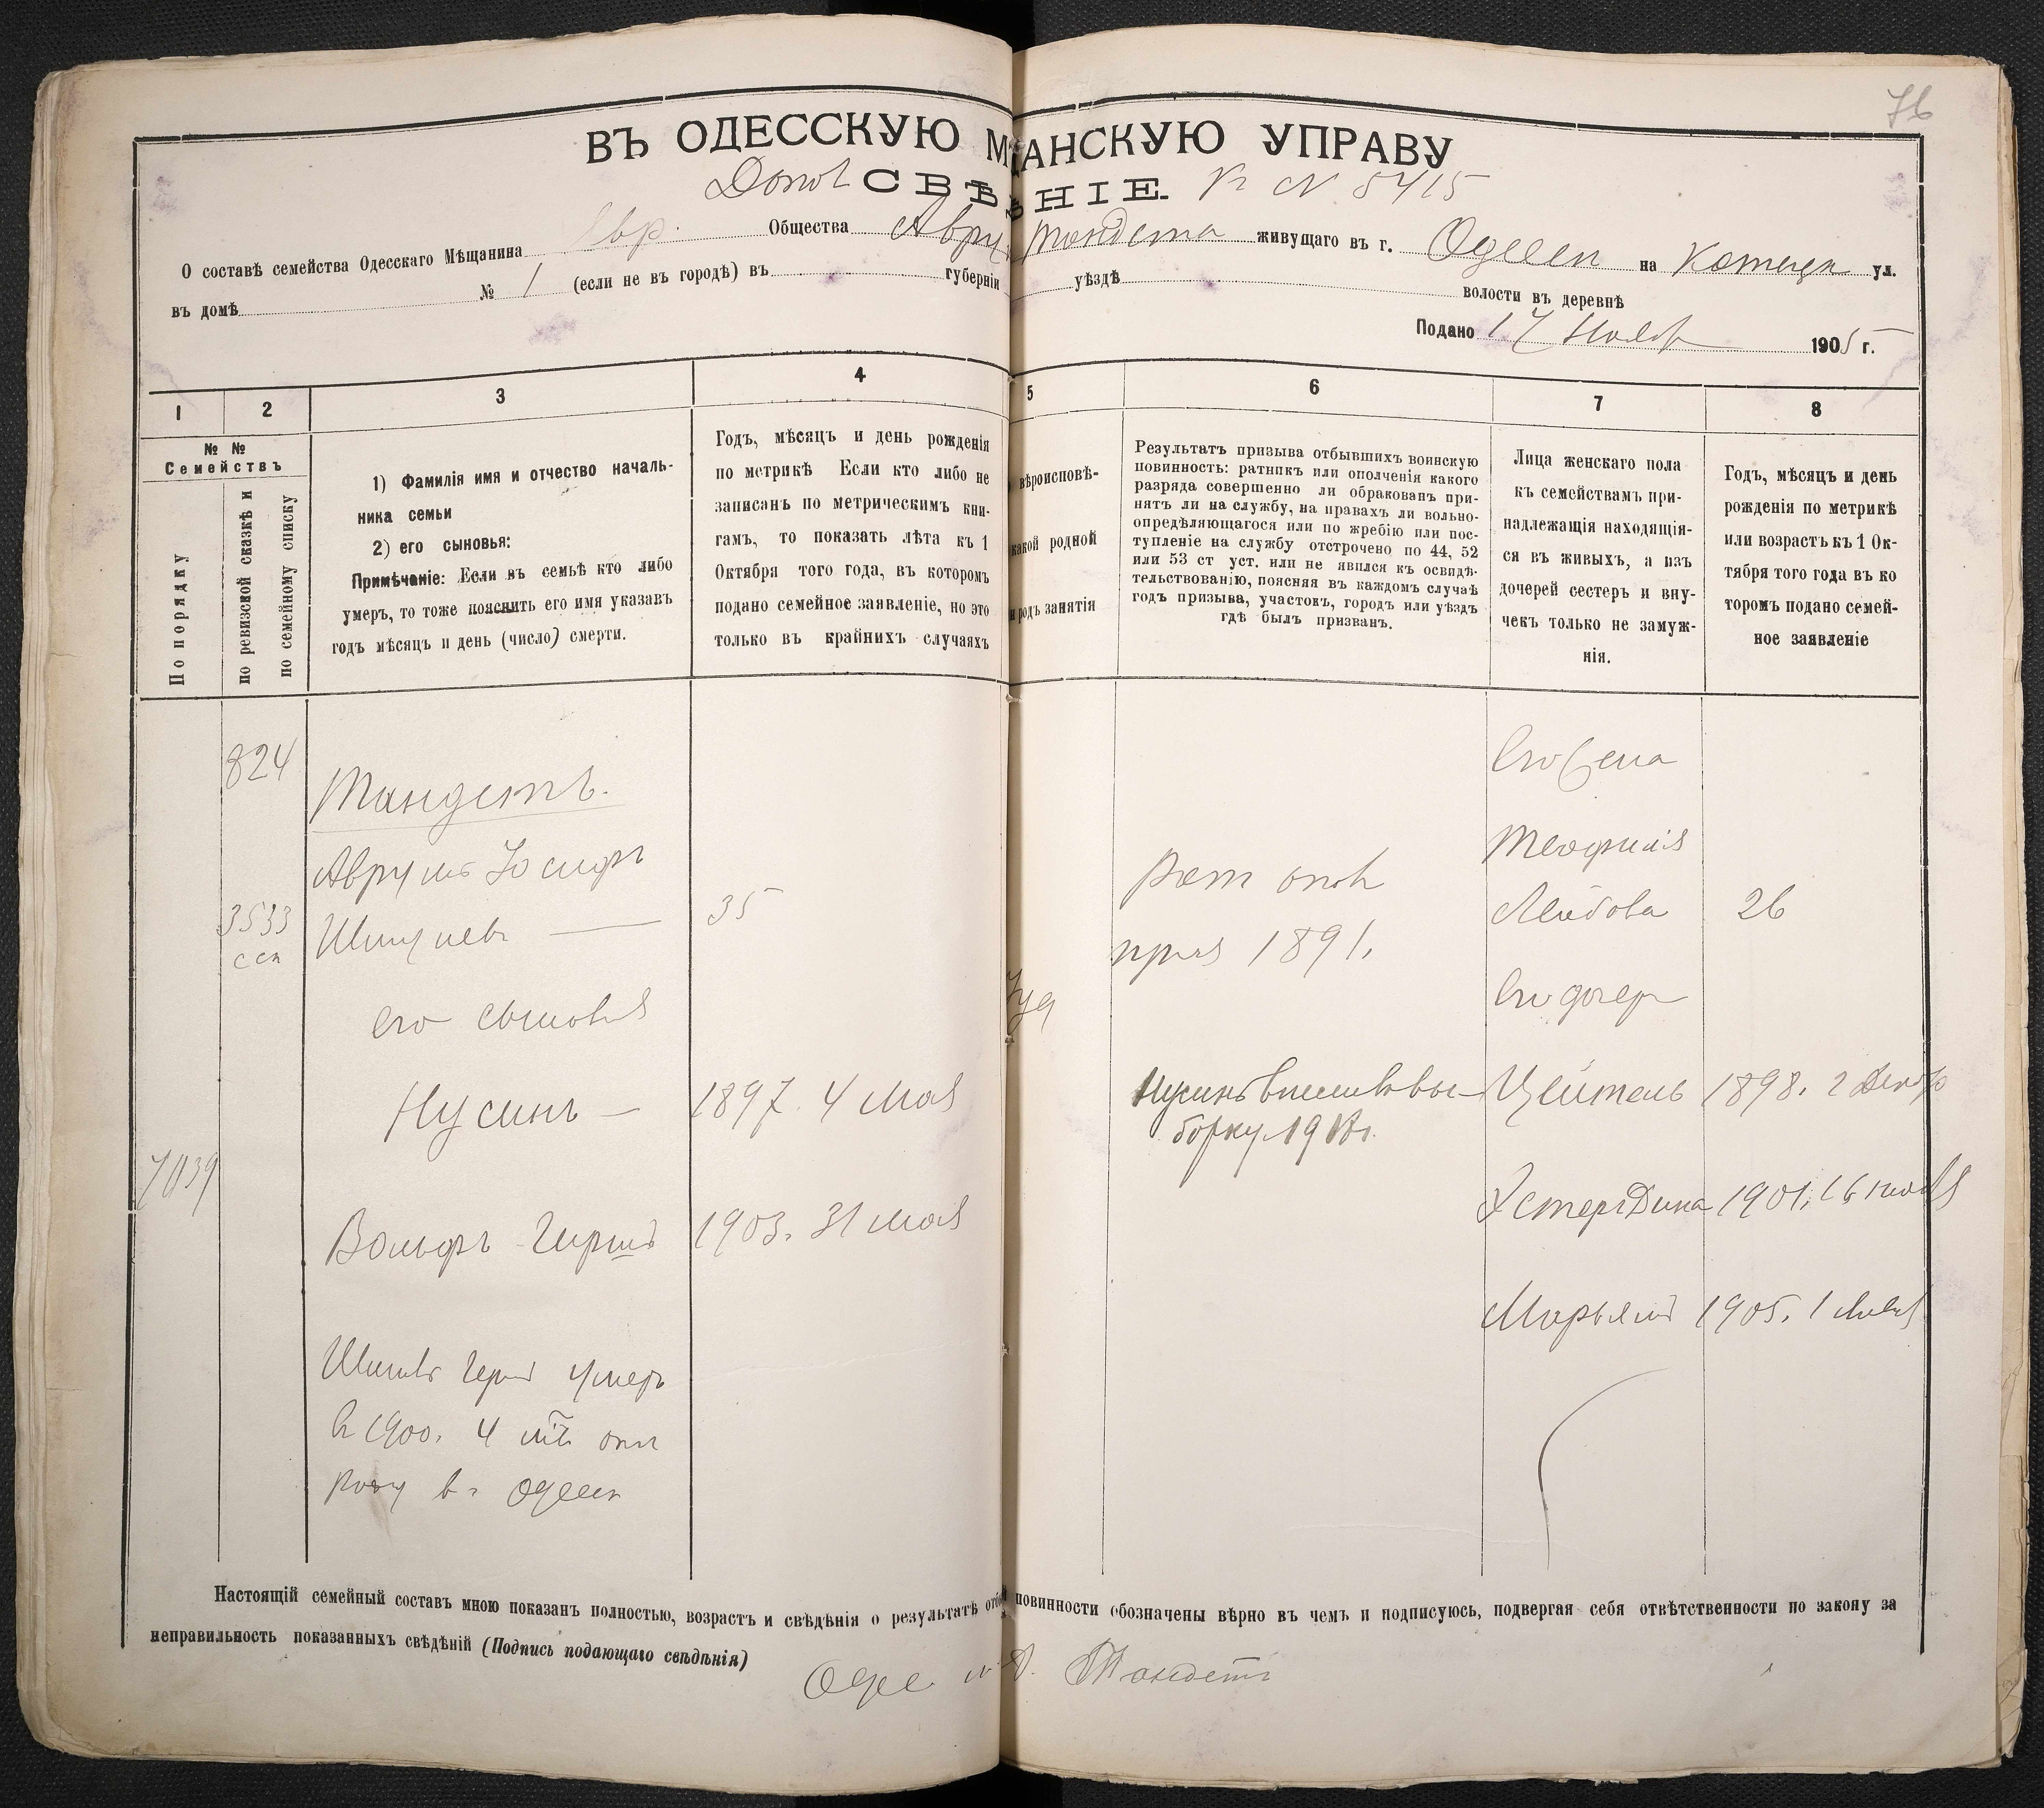 76
ВЪ ОДЕССКУЮ М ЩАНСКУЮ УПРАВУ
СВѢ НІЕ. К № 5415
О составѣ семейства Одесскаго Мѣщанина Евр. Общества Авру Тандета живущаго въ г. Одессѣ на ул.
въ домѣ № 1 (если не въ городѣ) въ губерніи уѣздѣ волости въ деревнѣ
Подано 17 Нояб 1905 г.
1 2 3 4 5 6 7 8
№ №
Семействъ
По порядку
по ревизской сказкѣ и
по семейному списку
1) Фамилія имя и отчество началь-
ника семьи
2) его сыновья:
Примѣчаніе: Если въ семьѣ кто либо
умеръ, то тоже пояснить его имя указавъ
годъ мѣсяцъ и день (число) смерти.
Годъ, мѣсяцъ и день рожденія
по метрикѣ Если кто либо не
записанъ по метрическимъ кни-
гамъ, то показать лѣта къ 1
Октября того года, въ которомъ
подано семейное заявленіе, но это
только въ крайнихъ случаяхъ
вѣроисповѣ-
какой родной
и родъ занятія
Результатъ призыва отбывшихъ воинскую
повинность: ратникъ или ополченія какого
разряда совершенно ли обракованъ при-
нятъ ли на службу, на правахъ ли вольно-
опредѣляющагося или по жребію или пос-
тупленіе на службу отстрочено по 44, 52
или 53 ст уст. или не явился къ освидѣ-
тельствованію, поясняя въ каждомъ случаѣ
годъ призыва, участокъ, городъ или уѣздъ
гдѣ былъ призванъ.
Лица женскаго пола
къ семействамъ при-
надлежащія находящія-
ся въ живыхъ, а изъ
дочерей сестеръ и вну-
чекъ только не замуж-
нія.
Годъ, мѣсяцъ и день
рожденія по метрикѣ
или возрастъ къ 1 Ок-
тября того года въ ко
торомъ подано семей-
ное заявленіе
824
Тандетъ.
Аврумъ Іосифъ
3533
Шмулевъ — 35
его сыновья
Нусинъ — 1897. 4 Мая
Вольфъ Гершъ 1903. 31 Мая
умеръ
в 1900. 4
в г Одессѣ
Рат опол
приз 1891.
Іуд
Нусинъ
борку 1918г.
Его жена
Теофилія
Лейбова 26
Его дочери
Цейтель 1898. 2 Декабр
Эстеръ Дина 1901. 16
Марьямъ 1905. 1
Настоящій семейный составъ мною показанъ полностью, возрастъ и свѣдѣнія о результатѣ отбы повинности обозначены вѣрно въ чемъ и подписуюсь, подвергая себя отвѣтственности по закону за
неправильность показанныхъ свѣдѣній (Подпись подающаго свѣдѣнія)
Тандетъ